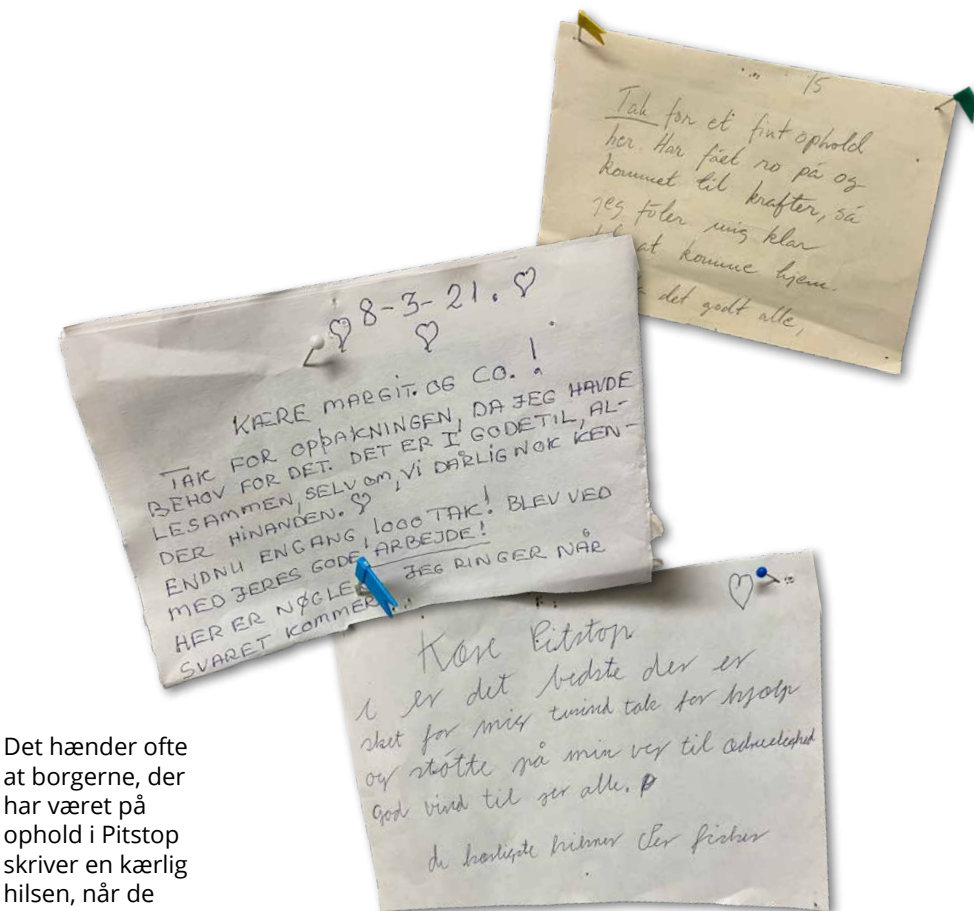 15
Tak for et fint ophold
her. Har fået ro på og
kommet til krafter, så
jeg føler mig klar
at komme hjem.
det godt alle,
♡ 8-3-21. ♡
♡
KÆRE MARGIT. OG CO. !
TAK FOR OPPAKNINGEN, DA JEG HAVDE
BEHOV FOR DET. DET ER I GODETIL, AL-
LESAMMEN, SELV OM, VI DÅRLIG NOK KEN-
DER HINANDEN. ♡
ENDNU ENGANG 1000 TAK! BLEV VED
MED JERES GODE ARBEJDE!
HER ER NØGLE JEG RINGER NÅR
SVARET KOMMER
♡
Kære Pitstop
i er det bedste der er
sket for mig tusind tak for hjælp
og støtte på min vej til ædruelighed
god vind til jer alle.
de kærligste hilsner
Det hænder ofte
at borgerne, der
har været på
ophold i Pitstop
skriver en kærlig
hilsen, når de